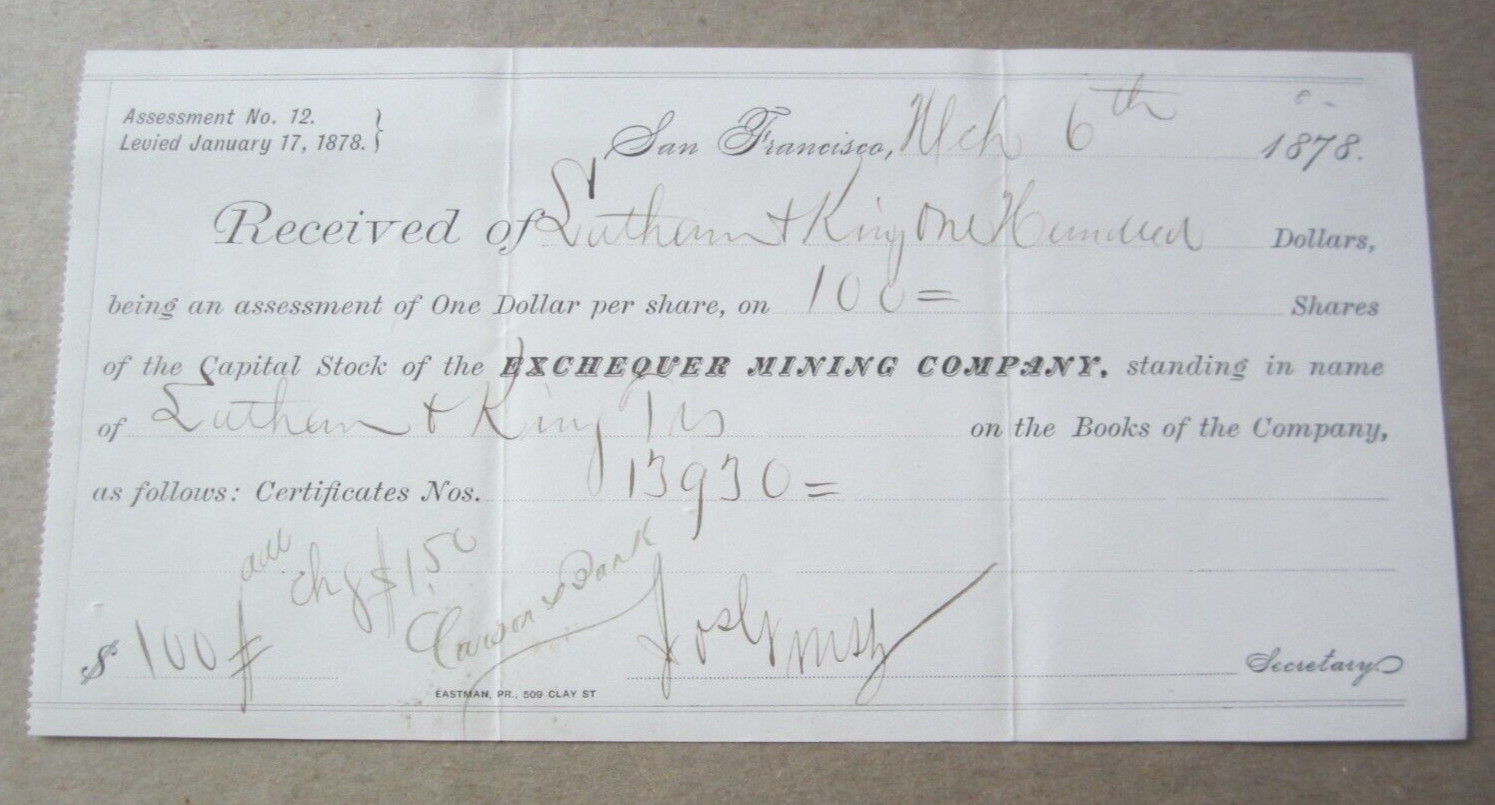 Assessment No. 12.
Levied January 17, 1878. }
San Francisco, Mch 6th 1878.
Received of Latham & King One Hundred Dollars,
being an assessment of One Dollar per share, on 100= Shares
of the Capital Stock of the EXCHEQUER MINING COMPANY, standing in name
of Latham & King Trs on the Books of the Company,
as follows: Certificates Nos. 13930=
add chg $1.50
$100
Secretary
EASTMAN, PR., 509 CLAY ST